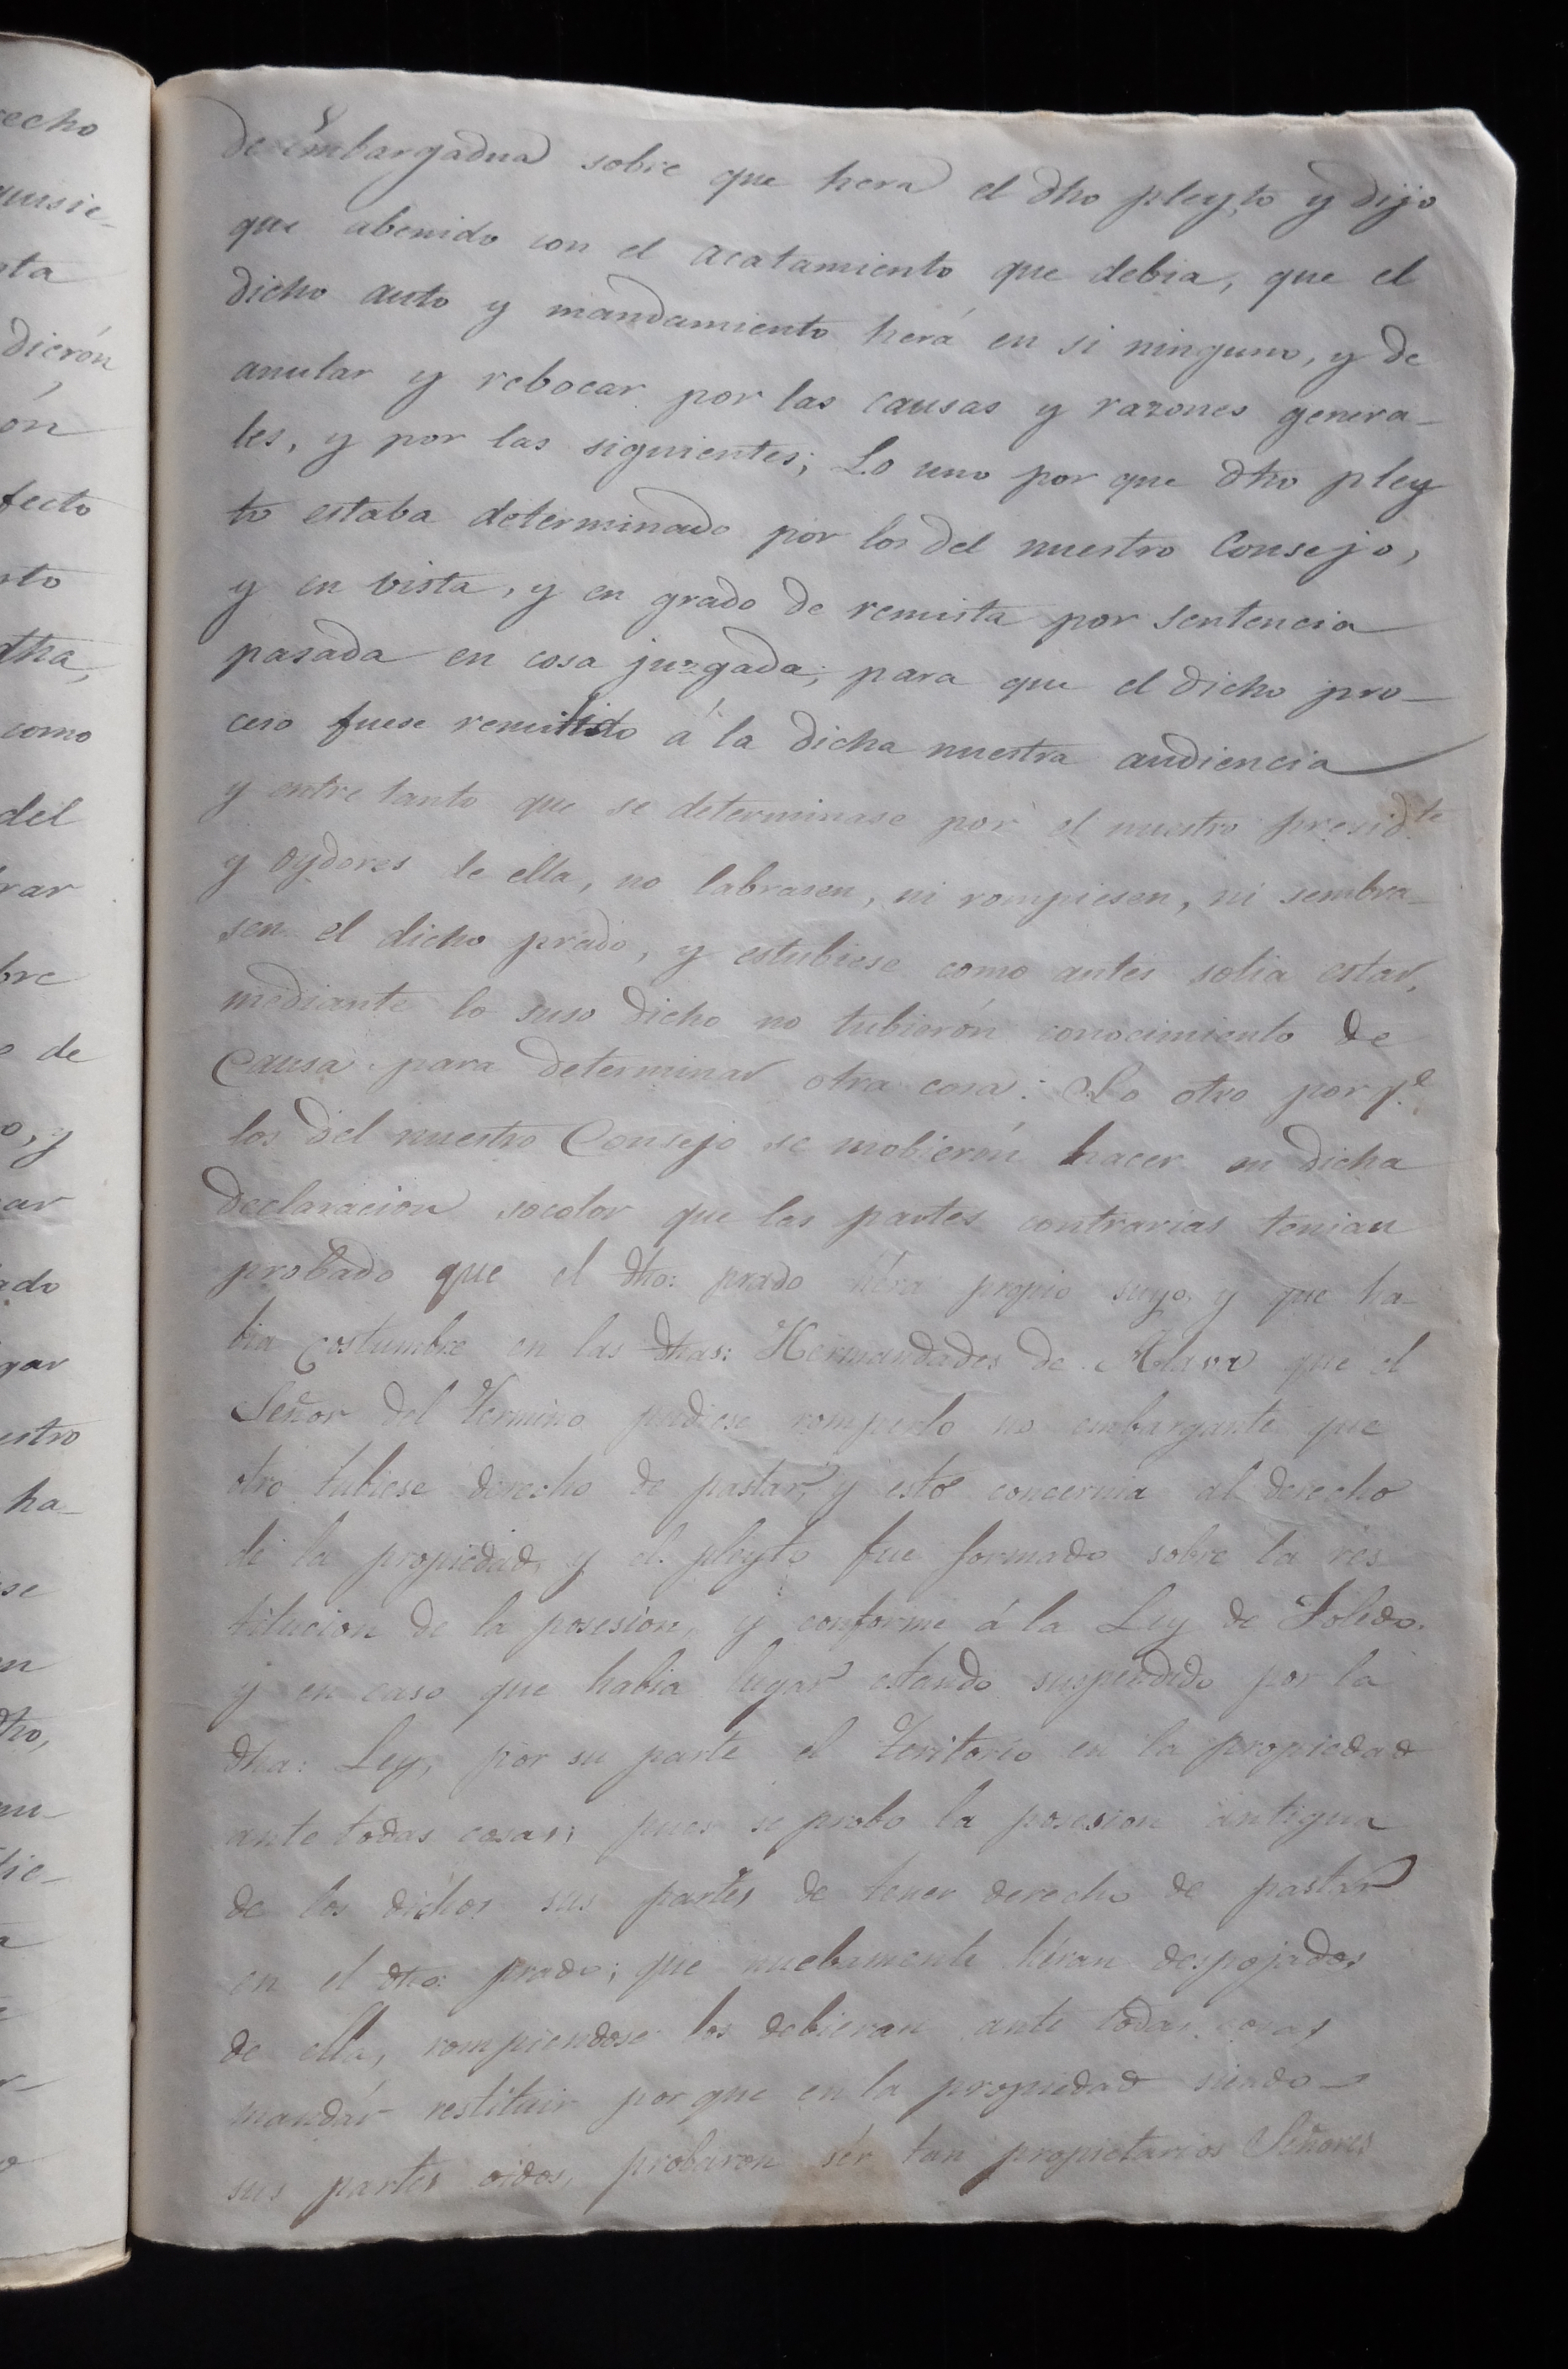 de Embargadua sobre que hera el dho pleyto y dijo
que abenido con el acatamiento que debia, que el
dicho auto y mandamiento herá en si ninguno, y de
anular y rebocar por las causas y razones genera-
les, y por las siguientes; Lo uno por que dho pley
to estaba determinado por los del nuestro Consejo,
y en vista, y en grado de remista por sentencia
pasada en cosa juzgada; para que el dicho pro-
ceso fuese remitido á la dicha nuestra audiencia
y entre tanto que se determinase por el nuestro presid.te
y oydores de ella, no labrasen, ni rompiesen, ni sembra-
sen el dicho prado, y estubiese como antes solia estar,
mediante lo suso dicho no tubierón conocimiento de
Causa para determinar otra cosa: Lo otro por q.e
los del nuestro Consejo se mobierón hacer su dicha
declaracion socolor que las partes contrarias tenian
probado que el dho: prado héra propio suyo, y que ha-
bia costumbre en las dhas: Hermandades de Alava que el
Señor del termino pudiese romperlo no embargante que
otro tubiese derecho de pastar, y esto concernia al derecho
de la propiedad, y el pleyto fue formado sobre la res
titucion de la posesión, y conforme á la Ley de Toledo.
y en caso que habia lugar estando suspendido por la
dha: Ley, por su parte el teritorio en la propiedad
ante todas cosas; pues se probo la posesion antigua
de los dichos sus partes de tener derecho de pastar
en el dho: prado; que nuebamente héran despojados
de ella, rompiendose los debieran ante todas cosas
mandár restituir por que en la propiedad siendo
sus partes oidos, probaron sér tan propietarios Señores